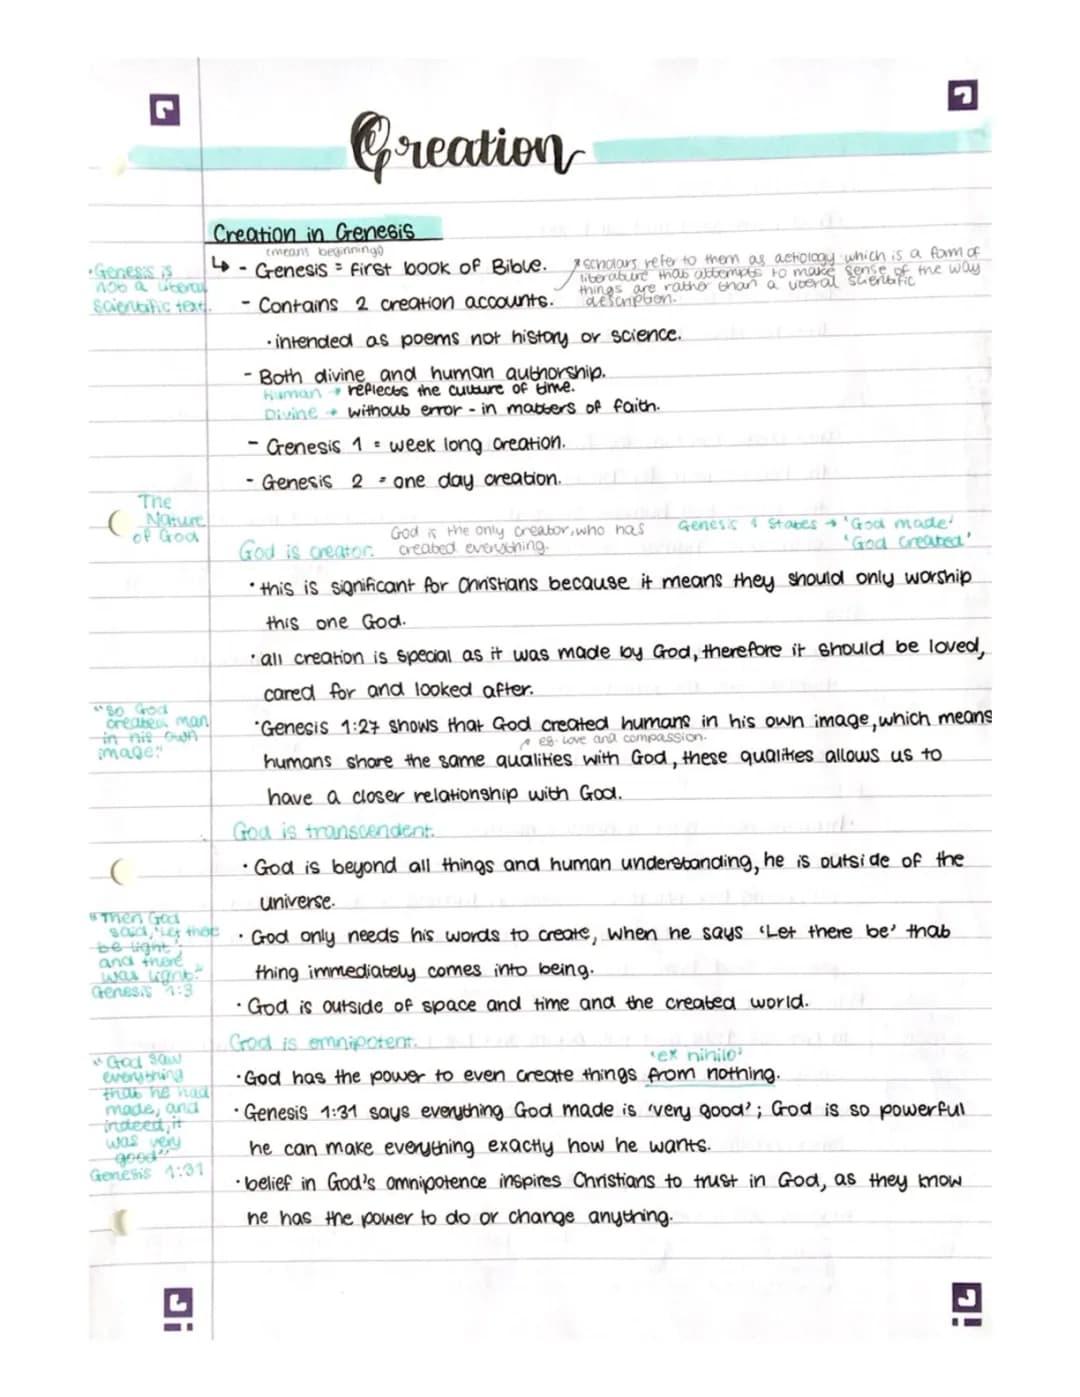 Creation
Creation in Genesis
(means beginning)
↳ - Genesis = first book of Bible.
*scholars refer to them as aetiology which is a form of
literature that attempts to make sense of the way
things are rather than a literal scientific
description.
•Genesis is
not a literal
scientific text.
- Contains 2 creation accounts.
• intended as poems not history or science.
- Both divine and human authorship.
Human → reflects the culture of time.
Divine → without error - in matters of faith.
- Genesis 1 = week long creation.
- Genesis 2 = one day creation.
The
Nature
of God
God is creator.
God is the only creator, who has
created everything.
Genesis 1 states → 'God made'
'God created'
• this is significant for Christians because it means they should only worship
this one God.
• all creation is special as it was made by God, therefore it should be loved,
cared for and looked after.
"so God
created man
in his own
image."
• Genesis 1:27 shows that God created humans in his own image, which means
eg. love and compassion.
humans share the same qualities with God, these qualities allows us to
have a closer relationship with God.
God is transcendent.
• God is beyond all things and human understanding, he is outside of the
universe.
"Then God
said, 'Let there
be light';
and there
was light."
Genesis 1:3
• God only needs his words to create, when he says 'Let there be' that
thing immediately comes into being.
• God is outside of space and time and the created world.
God is omnipotent.
'ex nihilo'
• God has the power to even create things from nothing.
"God saw
everything
that he had
made, and
indeed, it
was very
good"
Genesis 1:31
• Genesis 1:31 says everything God made is 'very good'; God is so powerful
he can make everything exactly how he wants.
• belief in God's omnipotence inspires Christians to trust in God, as they know
he has the power to do or change anything.